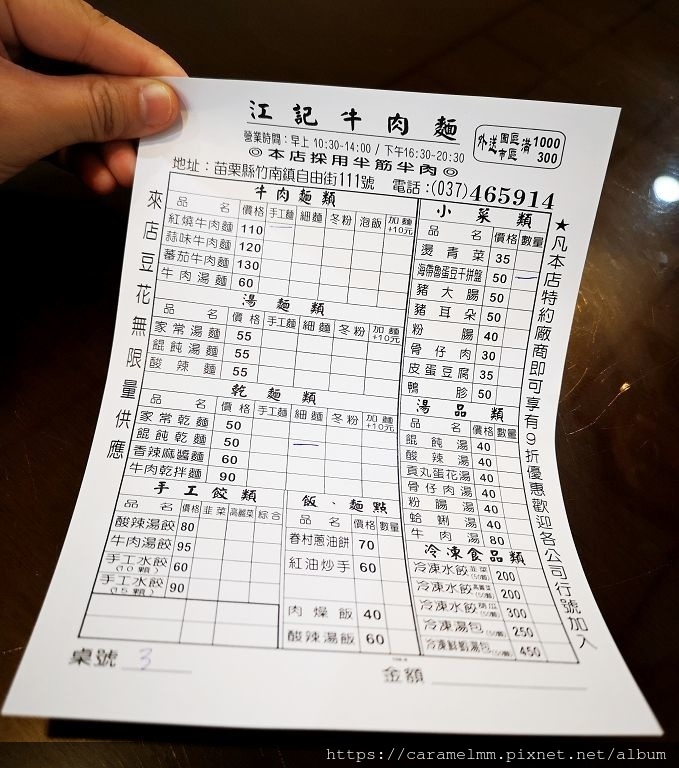 江記牛肉麵
營業時間：早上 10:30-14:00 / 下午16:30-20:30
◎本店採用半筋半肉◎
外送 園區 市區 滿 1000 300
地址：苗栗縣竹南鎮自由街111號 電話：(037)465914
來店豆花無限量供應
牛肉麵類
品名 價格 手工麵 細麵 冬粉 泡飯 加麵+10元
紅燒牛肉麵 110
蒜味牛肉麵 120
蕃茄牛肉麵 130
牛肉湯麵 60
湯麵類
品名 價格 手工麵 細麵 冬粉 加麵+10元
家常湯麵 55
餛飩湯麵 55
酸辣麵 55
乾麵類
品名 價格 手工麵 細麵 冬粉 加麵+10元
家常乾麵 50
餛飩乾麵 50
香辣麻醬麵 60
牛肉乾拌麵 90
手工餃類
品名 價格 韭菜 高麗菜 綜合
酸辣湯餃 80
牛肉湯餃 95
手工水餃(10顆) 60
手工水餃(15顆) 90
飯、麵點
品名 價格 數量
眷村蔥油餅 70
紅油炒手 60
肉燥飯 40
酸辣湯飯 60
小菜類
品名 價格 數量
燙青菜 35
海帶魯蛋豆干拼盤 50
豬大腸 50
豬耳朵 50
粉腸 40
骨仔肉 30
皮蛋豆腐 35
鴨胗 50
湯品類
品名 價格 數量
餛飩湯 40
酸辣湯 40
貢丸蛋花湯 40
骨仔肉湯 40
粉腸湯 40
蛤蜊湯 40
牛肉湯 80
冷凍食品類
冷凍水餃 韭菜(50顆) 200
冷凍水餃 高麗菜(50顆) 200
冷凍水餃 (50顆) 300
冷凍湯包 (50顆) 250
冷凍鮮蝦湯包 (50顆) 450
★凡本店特約廠商即可享有9折優惠歡迎各公司行號加入
桌號 3
金額
https://caramelmm.pixnet.net/album